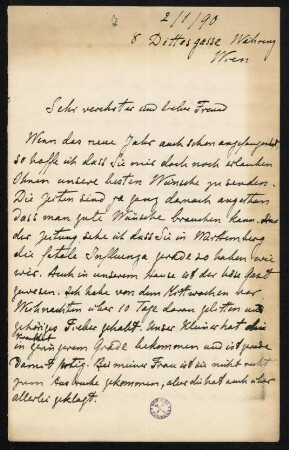 2/1/90
8 Dittesgasse Währing
Wien
Sehr verehrter und lieber Freund
Wenn das neue Jahr auch schon angefangen hat
so hoffe ich dass Sie mir doch noch erlauben
Ihnen unsere besten Wünsche zu senden.
Die Zeiten sind ja ganz danach angethan
dass man gute Wünsche brauchen kann. Aus
der Zeitung sehe ich dass Sie in Würtemberg
die fatale Influenza gerade so haben wie
wir. Auch in unserem Hause ist der böse Gast
gewesen. Ich habe von den Mittwochen vor
Weihnachten über 10 Tage daran gelitten und
gehöriges Fieber gehabt. Unser Kleiner hat die
Krankheit
in geringerem Grade bekommen und ist gerade
damit fertig. Bei meiner Frau ist sie nicht recht
zum Ausbruche gekommen, aber die hat auch über
allerlei geklagt.